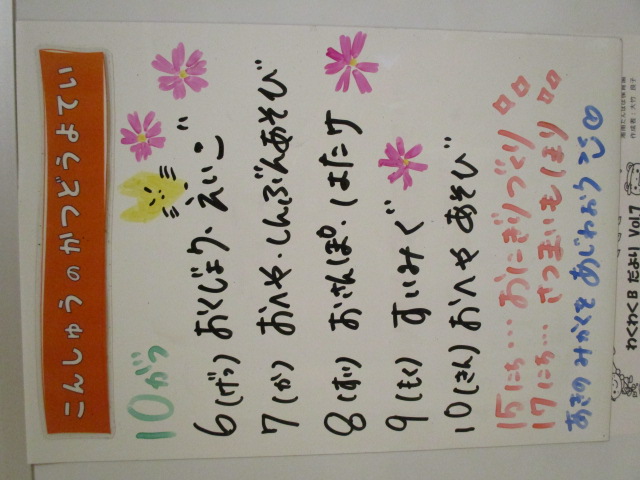 こんしゅうのかつどうよてい
10がつ
6(げつ) おくじょう、えいご
7(か) おへや・しんぶんあそび
8(すい) おさんぽ・はたけ
9(もく) すいみんぐ
10(きん) おへやあそび
15にち… おにぎりづくり
17にち… さつまいもほり
あきのみかくをあじわおう
わくわくBだより Vol.7